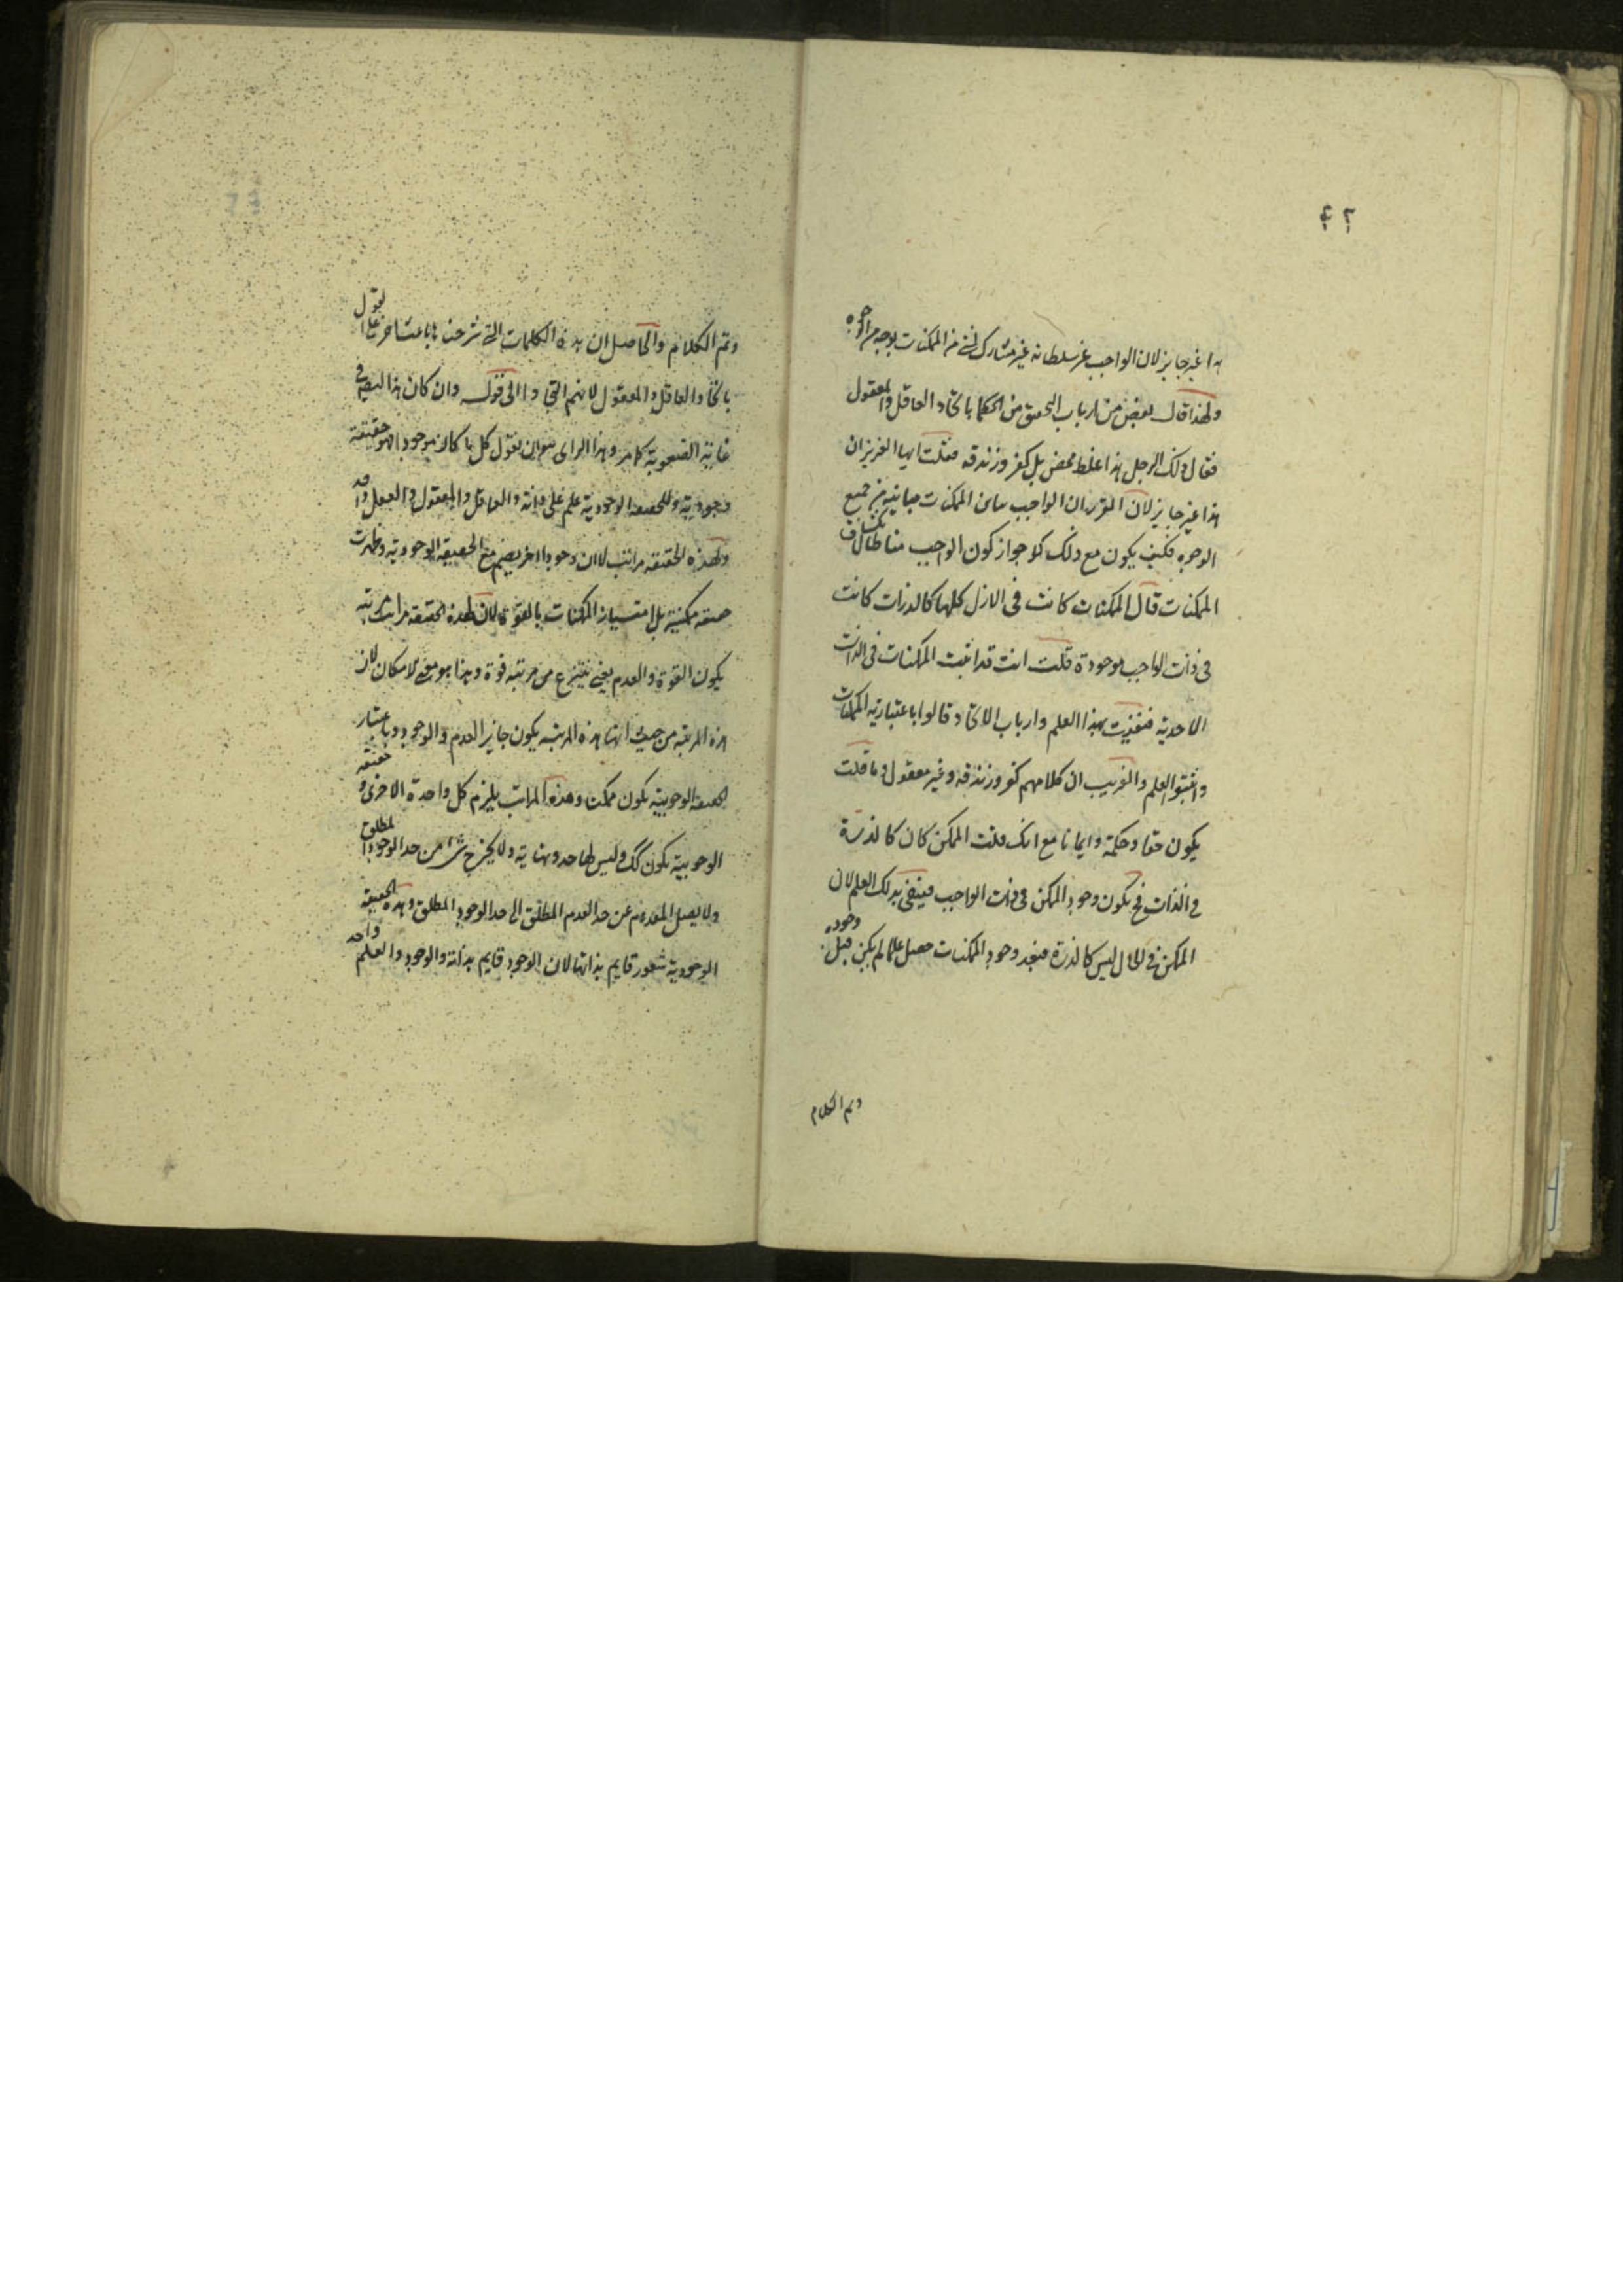 ٤٢
هذا غير جايز لان الواجب عز سلطانه غير مشارك لشئ من الممكنات بوجه من الوجوه
ولهذا قال بعض من ارباب التحقيق من الحكما باتحاد العاقل والمعقول
فقال ذلك الرجل هذا غلط محض بل كفر وزندقه فقلت ايها العزيز ان
هذا غير جايز لان المقرر ان الواجب مباين الممكنات مباينة من جميع
الوجوه فكيف يكون مع ذلك كلا جواز كون الواجب مناطا لانكشاف
الممكنات قال الممكنات كانت فى الازل كلها كالذرات كانت
فى ذات الواجب موجودة قلت انت قد اثبت الممكنات فى الذات
الاحدية فنفيت بهذا العلم وارباب الاتحاد قالوا باعتبارية الممكنات
واثبتوا العلم والغريب ان كلامهم كفر وزندقه وغير معقول وما قلت
يكون حقا وحكمة وايمانا مع انك قلت الممكن كان كالذرة
فى الذات فح يكون وجود الممكن فى ذات الواجب فينفى بذلك العلم لان
الممكن فى الحال ليس كالذرة فبعد وجود الممكنات حصل علما لم يكن قبل وجوده
وتم الكلام
وتم الكلام والحاصل ان هذه الكلمات التى شرحناها باعتبار اخر على القول
باتحاد العاقل والمعقول لانهم التجاوا الى قول وان كان هذا ايضا فى
غاية الصعوبة كما مر وهذا الراى هو ان نقول كل ما كان موجودا فهو حقيقة
وجودية وللحقيقة الوجودية علم على ذاته والعاقل والمعقول والعقل واحد
ولهذه الحقيقة مراتب لا ان وجودا اخر ينضم مع الحقيقة الوجودية وظهرت
حقيقة ممكنة بل امتياز الممكنات بالقوة كان لهذه الحقيقة مراتب مرتبة
يكون القوة والعدم يعنى ينتزع من مرتبة قوة وهذا هو معنى الامكان لان
هذه المرتبة من حيث انها هذه المرتبة يكون جايز العدم والوجود وباعتبار حقيقة
الحقيقة الوجوبية يكون ممكنة وهذه المراتب يلزم كل واحدة الاخرى و
الوجوبية يكون كك وليس لها حد ونهاية ولا يخرج شئ من حد الوجود المطلق
ولا يصل المعدوم عن حد العدم المطلق الى حد الوجود المطلق وهذه الحقيقة
الوجودية شعور قايم بذاتها لان الوجود قايم بذاته والوجود والعلم واحد